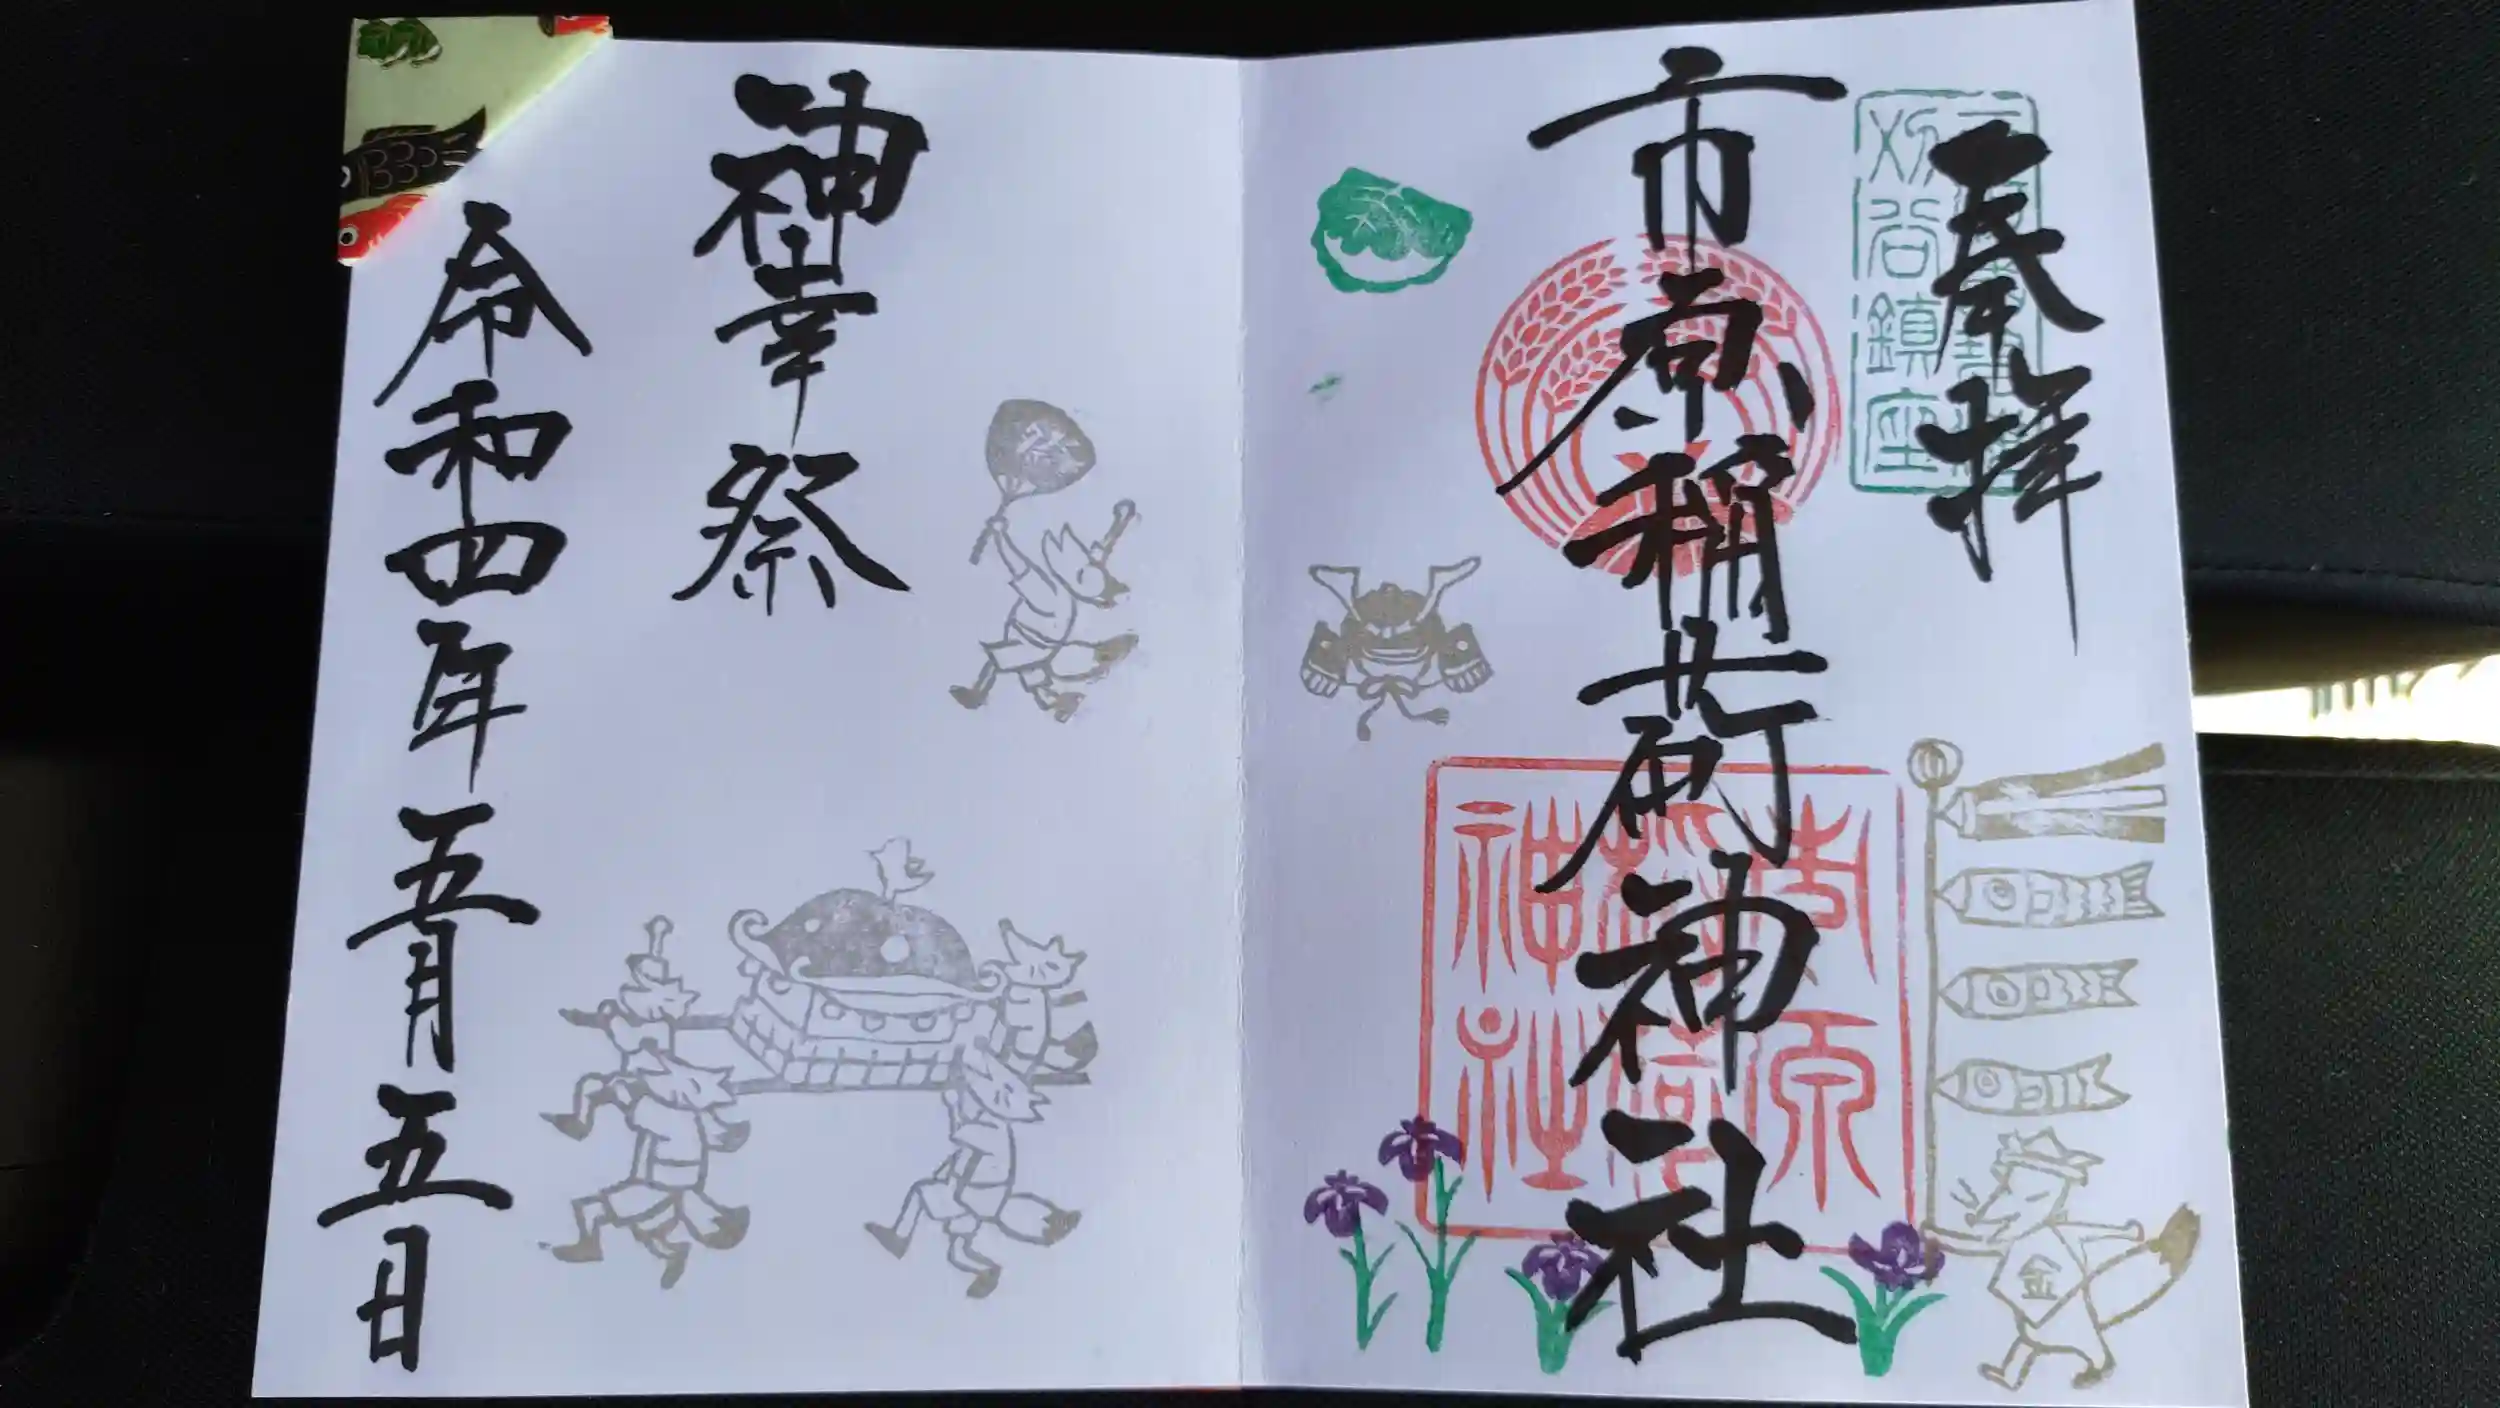 奉拝
刈谷鎮座
市原稲荷神社
市原稲荷神社
金
神幸祭
令和四年五月五日